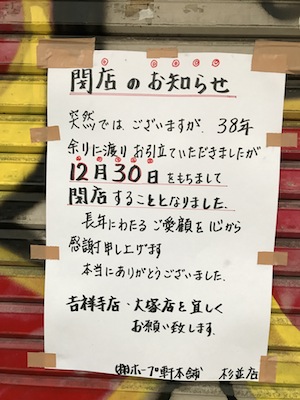 閉店のお知らせ
突然ではございますが、38年
余りに渡りお引立ていただきましたが
12月30日をもちまして
閉店することとなりました。
長年にわたるご愛顧を心から
感謝申し上げます
本当にありがとうございました。
吉祥寺店・大塚店を宜しく
お願い致します。
㈱ホープ軒本舗 杉並店